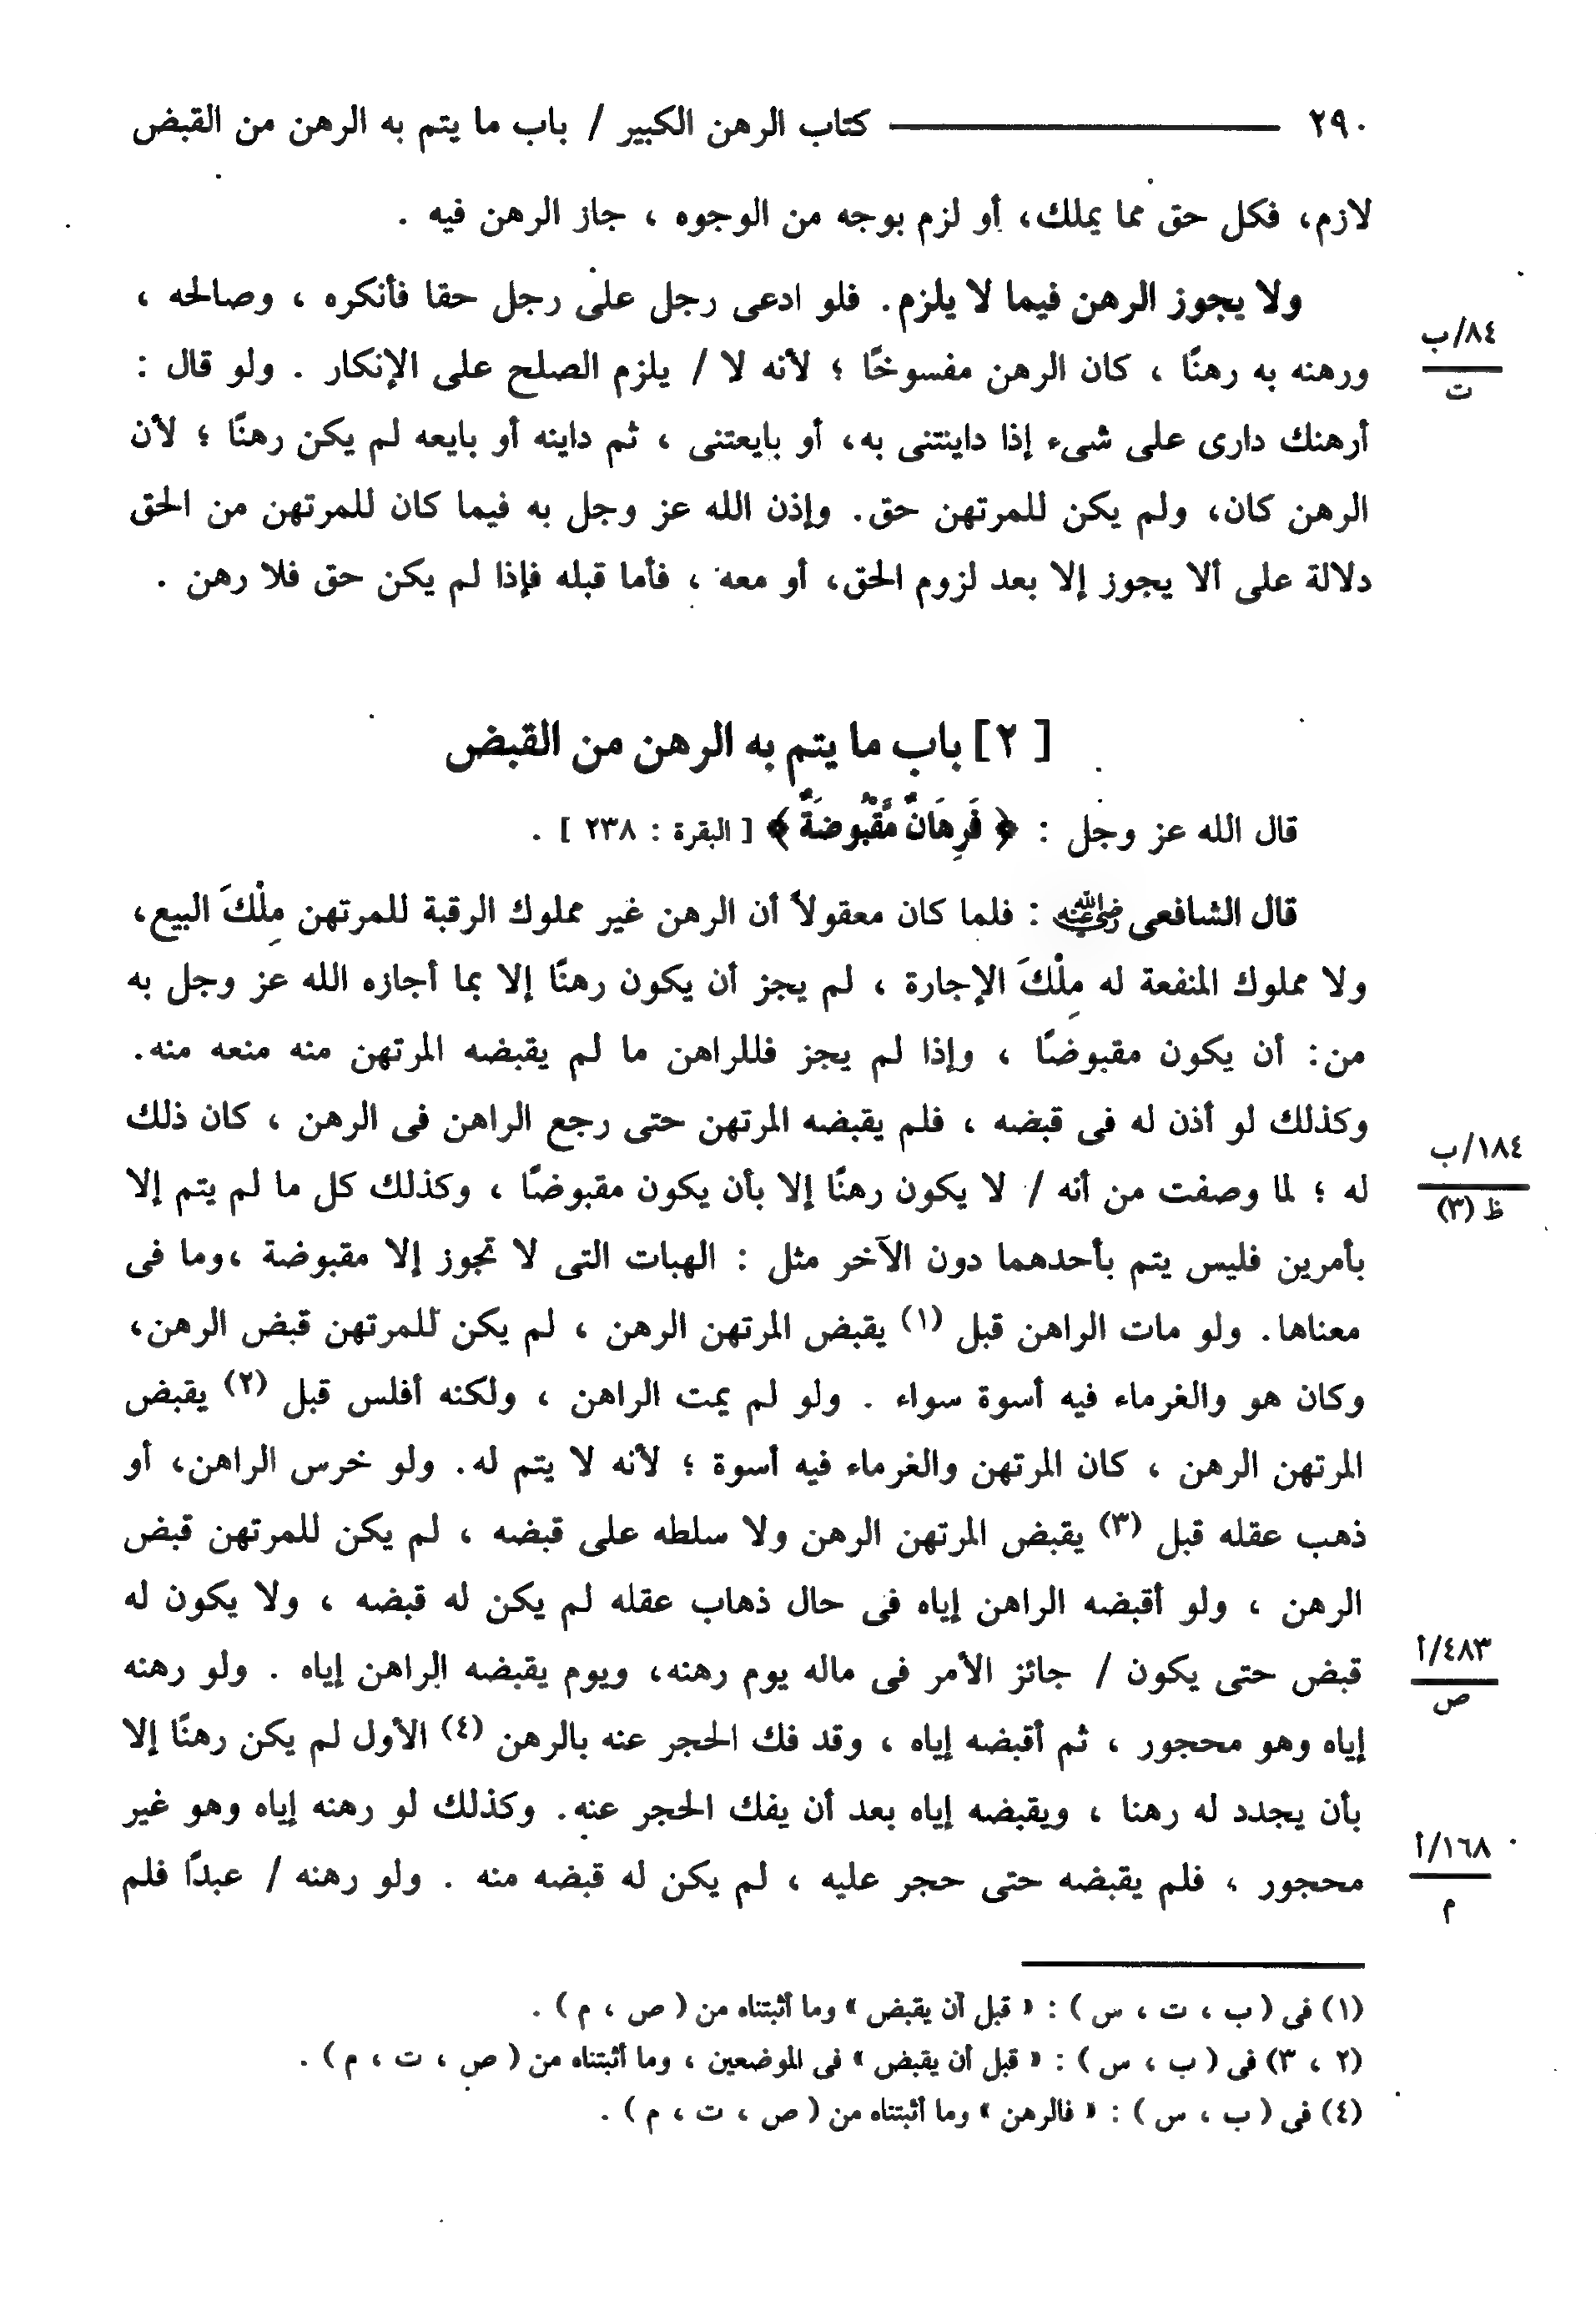 ٢٩٠ كتاب الرهن الكبير / باب ما يتم به الرهن من القبض
لازم، فكل حق مما يملك، أو لزم بوجه من الوجوه ، جاز الرهن فيه .
ولا يجوز الرهن فيما لا يلزم. فلو ادعى رجل على رجل حقا فأنكره ، وصالحه ،
٨٤/ب
ت
ورهنه به رهنًا ، كان الرهن مفسوخًا ؛ لأنه لا / يلزم الصلح على الإنكار . ولو قال :
أرهنك دارى على شىء إذا داينتنى به، أو بايعتنى ، ثم داينه أو بايعه لم يكن رهنًا ؛ لأن
الرهن كان، ولم يكن للمرتهن حق. وإذن الله عز وجل به فيما كان للمرتهن من الحق
دلالة على ألا يجوز إلا بعد لزوم الحق، أو معه ، فأما قبله فإذا لم يكن حق فلا رهن .
[ ٢] باب ما يتم به الرهن من القبض
قال الله عز وجل : ﴿ فَرِهَانٌ مَّقْبُوضَةٌ ﴾ [ البقرة : ٢٣٨ ] .
قال الشافعى رضي الله عنه : فلما كان معقولاً أن الرهن غير مملوك الرقبة للمرتهن مِلْكَ البيع،
ولا مملوك المنفعة له مِلْكَ الإجارة ، لم يجز أن يكون رهنًا إلا بما أجازه الله عز وجل به
من: أن يكون مقبوضًا ، وإذا لم يجز فللراهن ما لم يقبضه المرتهن منه منعه منه.
وكذلك لو أذن له فى قبضه ، فلم يقبضه المرتهن حتى رجع الراهن فى الرهن ، كان ذلك
١٨٤/ب
ظ (٣)
له ؛ لما وصفت من أنه / لا يكون رهنًا إلا بأن يكون مقبوضًا ، وكذلك كل ما لم يتم إلا
بأمرين فليس يتم بأحدهما دون الآخر مثل : الهبات التى لا تجوز إلا مقبوضة ،وما فى
معناها. ولو مات الراهن قبل (١) يقبض المرتهن الرهن ، لم يكن للمرتهن قبض الرهن،
وكان هو والغرماء فيه أسوة سواء . ولو لم يمت الراهن ، ولكنه أفلس قبل (٢) يقبض
المرتهن الرهن ، كان المرتهن والغرماء فيه أسوة ؛ لأنه لا يتم له. ولو خرس الراهن، أو
ذهب عقله قبل (٣) يقبض المرتهن الرهن ولا سلطه على قبضه ، لم يكن للمرتهن قبض
الرهن ، ولو أقبضه الراهن إياه فى حال ذهاب عقله لم يكن له قبضه ، ولا يكون له
٤٨٣/أ
ص
قبض حتى يكون / جائز الأمر فى ماله يوم رهنه، ويوم يقبضه الراهن إياه . ولو رهنه
إياه وهو محجور ، ثم أقبضه إياه ، وقد فك الحجر عنه بالرهن (٤) الأول لم يكن رهنًا إلا
بأن يجدد له رهنا ، ويقبضه إياه بعد أن يفك الحجر عنه. وكذلك لو رهنه إياه وهو غير
١٦٨/أ
م
محجور ، فلم يقبضه حتى حجر عليه ، لم يكن له قبضه منه . ولو رهنه / عبدًا فلم
(١) فى ( ب ، ت ، س ) : « قبل أن يقبض » وما أثبتناه من ( ص ، م ) .
(٢ ، ٣) فى ( ب ، س ) : « قبل أن يقبض » فى الموضعين ، وما أثبتناه من ( ص ، ت ، م ) .
(٤) فى ( ب ، س ) : « فالرهن » وما أثبتناه من ( ص ، ت ، م ) .